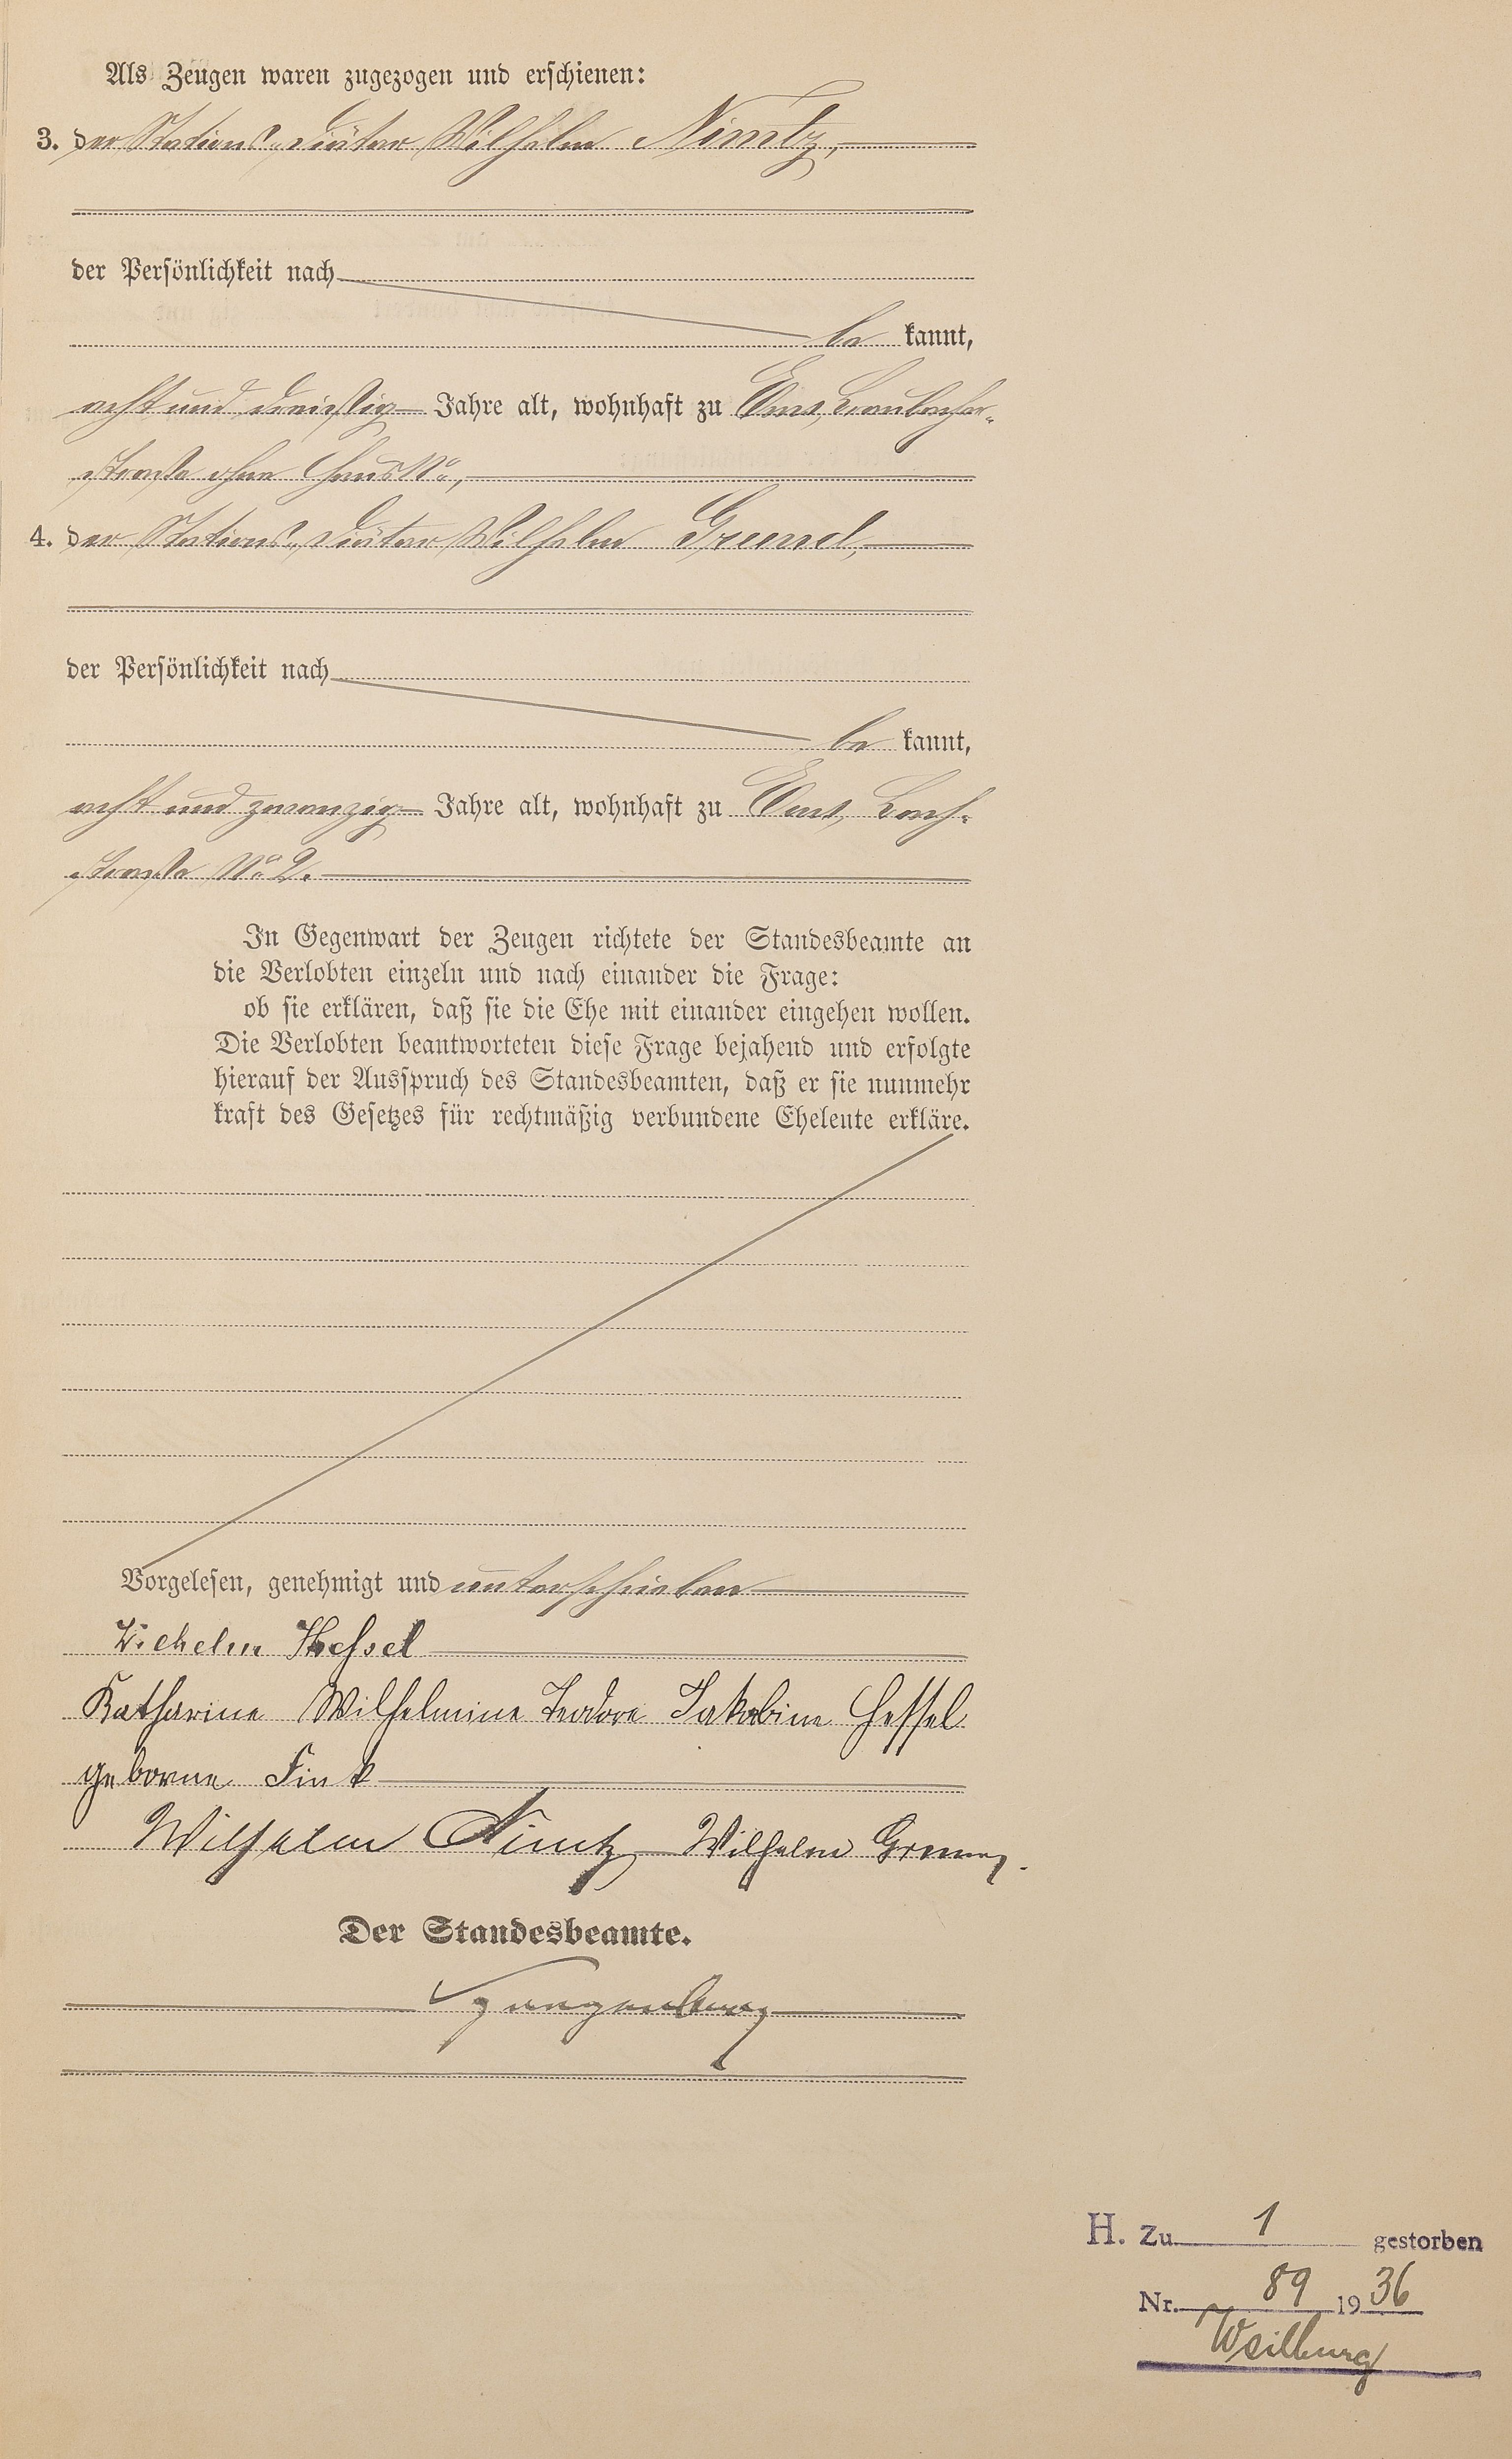 Als Zeugen waren zugezogen und erschienen:
3. der Stations-Diätar Wilhelm Nimtz,
der Persönlichkeit nach
be kannt,
acht und dreißig Jahre alt, wohnhaft zu Ems, Braubacher-
straße ohne Haus No,
4. der Stations-Diätar Wilhelm Grund,
der Persönlichkeit nach
be kannt,
acht und zwanzig Jahre alt, wohnhaft zu Ems, Bach-
straße No 2.
In Gegenwart der Zeugen richtete der Standesbeamte an
die Verlobten einzeln und nach einander die Frage:
ob sie erklären, daß sie die Ehe mit einander eingehen wollen.
Die Verlobten beantworteten diese Frage bejahend und erfolgte
hierauf der Ausspruch des Standesbeamten, daß er sie nunmehr
kraft des Gesetzes für rechtmäßig verbundene Eheleute erkläre.
Vorgelesen, genehmigt und unterschrieben
Wilhelm Hessel
Katharine Wilhelmine Teodore Jakobine Hessel
geborne Fink
Wilhelm Nimtz Wilhelm Grund.
Der Standesbeamte.
H. Zu 1 gestorben
Nr. 89 1936
Weilburg